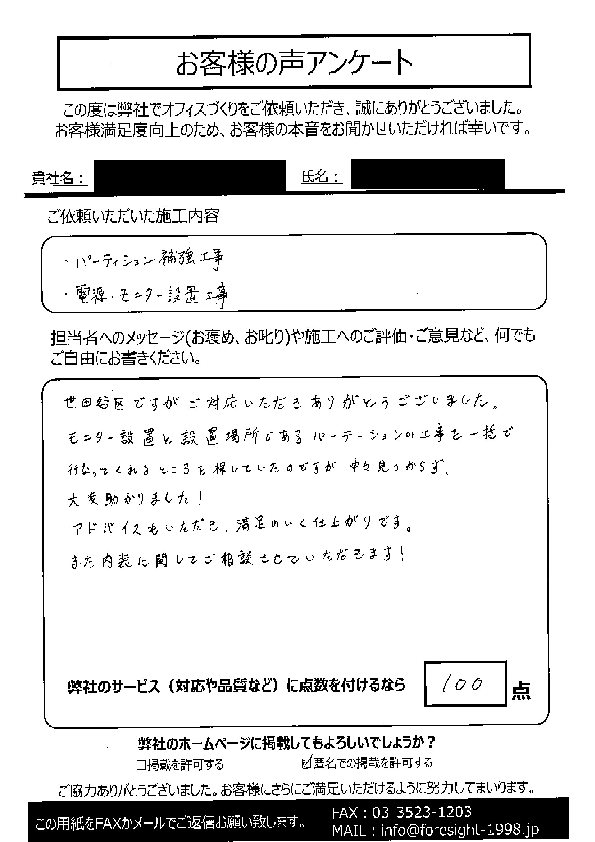 お客様の声アンケート
この度は弊社でオフィスづくりをご依頼いただき、誠にありがとうございました。
お客様満足度向上のため、お客様の本音をお聞かせいただければ幸いです。
貴社名： 氏名：
ご依頼いただいた施工内容
・パーティション補強工事
・電源・モニター設置工事
担当者へのメッセージ(お褒め、お叱り)や施工へのご評価・ご意見など、何でも
ご自由にお書きください。
世田谷区ですがご対応いただきありがとうございました。
モニター設置と設置場所であるパーテーションの工事を一括で
行なってくれるところを探していたのですが中々見つからず、
大変助かりました！
アドバイスもいただき、満足のいく仕上がりです。
また内装に関してご相談させていただきます！
弊社のサービス（対応や品質など）に点数を付けるなら 100 点
弊社のホームページに掲載してもよろしいでしょうか？
□掲載を許可する ☑匿名での掲載を許可する
ご協力ありがとうございました。お客様にさらにご満足いただけるように努力してまいります。
この用紙をFAXかメールでご返信お願い致します。
FAX：03-3523-1203
MAIL：info@foresight-1998.jp